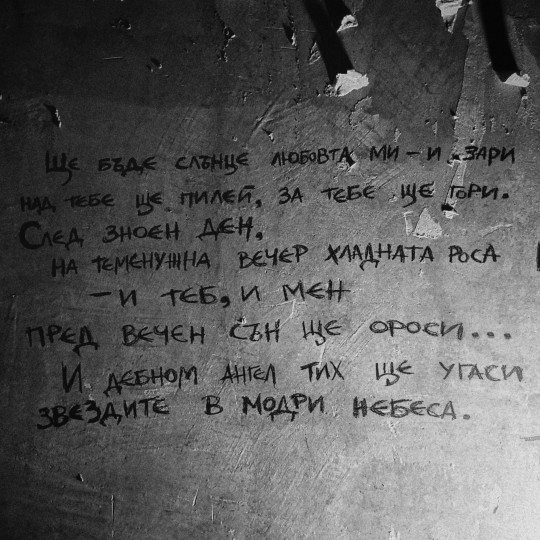 Ще бъде слънце любовта ми – и зари
над тебе ще пилей, за тебе ще гори.
След зноен ден,
на теменужна вечер хладната роса
– и теб, и мен
пред вечен сън ще ороси...
И дебном ангел тих ще угаси
звездите в модри небеса.